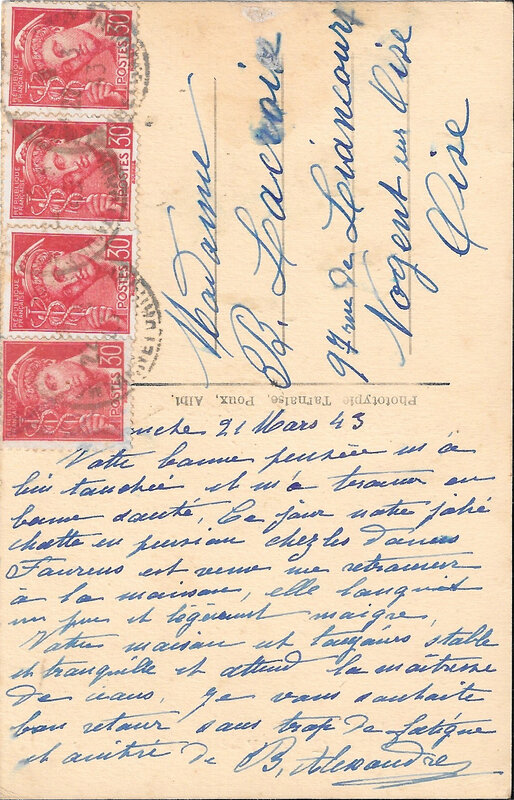 30
POSTES
REPUBLIQUE
FRANÇAISE
30
POSTES
REPUBLIQUE
FRANÇAISE
30
POSTES
REPUBLIQUE
FRANÇAISE
30
POSTES
REPUBLIQUE
FRANÇAISE
Madame
B. Lacroix
97 rue de Liancourt
Nogent sur Oise
Oise
Phototypie Tarnaise, Poux, Albi.
21 Mars 43
Votre bonne pensée m'a
bien touchée et m'a trouvée en
bonne santé, Ce jour notre jolie
chatte en pension chez les dames
Faurens est venue me retrouver
à la maison, elle languit
un peu et légèrement maigre,
Votre maison est toujours stable
et tranquille et attend la maîtresse
de céans, Je vous souhaite
bon retour sans trop de fatigue
et amitié de B. Alexandre